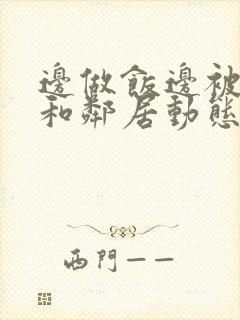 邊做飯邊被
和鄰居動態
西門——